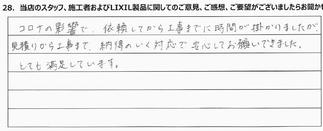 28. 当店のスタッフ、施工者およびLIXIL製品に関してのご意見、ご感想、ご要望がございましたらお聞か
コロナの影響で、依頼してから工事までに時間が掛かりましたが、
見積りから工事まで、納得のいく対応で安心してお願いできました。
とても満足しています。